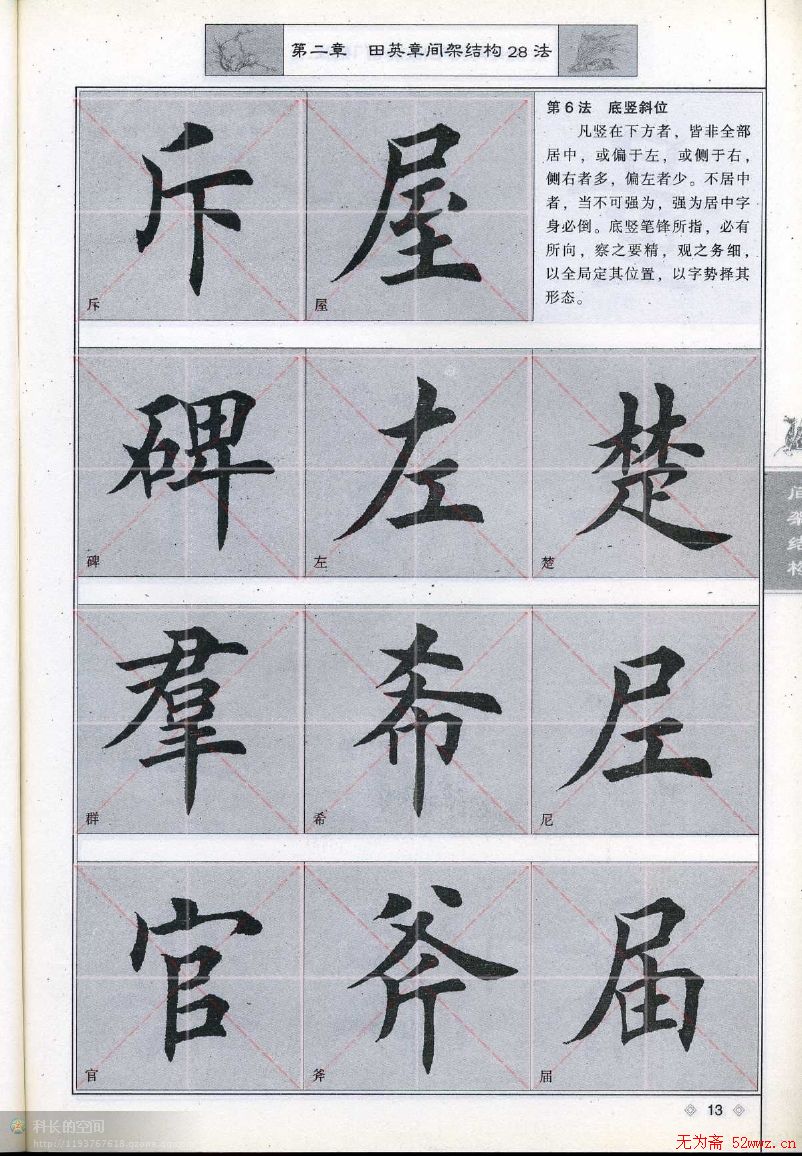 第二章 田英章间架结构28法
斥
屋
第6法 底竖斜位
凡竖在下方者，皆非全部
居中，或偏于左，或侧于右，
侧右者多，偏左者少。不居中
者，当不可强为，强为居中字
身必倒。底竖笔锋所指，必有
所向，察之要精，观之务细，
以全局定其位置，以字势择其
形态。
斥
屋
碑
左
楚
碑
左
楚
间架结构
羣
希
尼
群
希
尼
官
斧
届
官
斧
届
13
科长的空间
无为斋 52wwz.cn